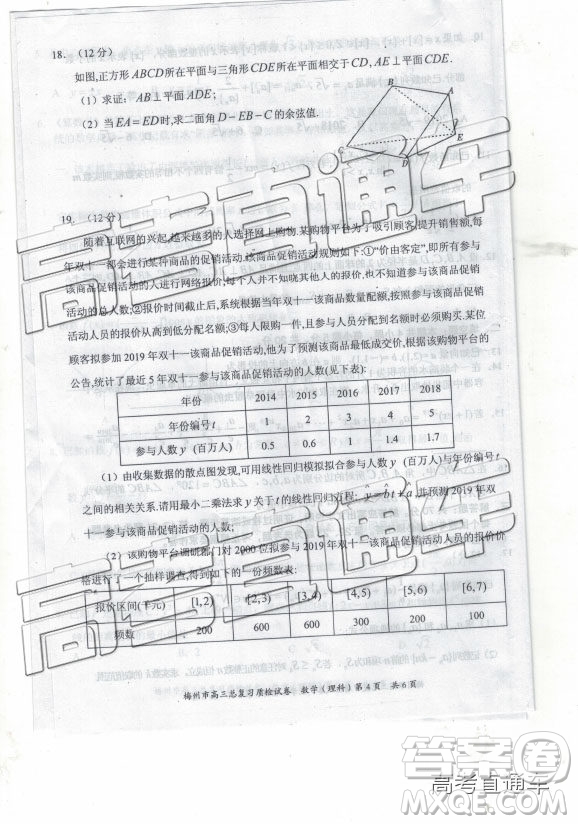 18. （12分）
如图,正方形ABCD所在平面与三角形CDE所在平面相交于CD，AE⊥平面CDE.
（1）求证：AB⊥平面ADE；
（2）当EA=ED时,求二面角D－EB－C的余弦值.
B
A
E
C
D
19. （12分）
随着互联网的兴起,越来越多的人选择网上购物.某购物平台为了吸引顾客,提升销售额,每
年双十一都会进行某种商品的促销活动.该商品促销活动规则如下:①“价由客定”,即所有参与
该商品促销活动的人进行网络报价,每个人并不知晓其他人的报价,也不知道参与该商品促销
活动的总人数;②报价时间截止后,系统根据当年双十一该商品数量配额,按照参与该商品促销
活动人员的报价从高到低分配名额;③每人限购一件,且参与人员分配到名额时必须购买.某位
顾客拟参加2019年双十一该商品促销活动,他为了预测该商品最低成交价,根据该购物平台的
公告,统计了最近5年双十一参与该商品促销活动的人数(见下表):
年份 2014 2015 2016 2017 2018
年份编号t 1 2 3 4 5
参与人数y（百万人） 0.5 0.6 1 1.4 1.7
（1）由收集数据的散点图发现,可用线性回归模拟拟合参与人数y（百万人）与年份编号t
之间的相关关系.请用最小二乘法求y关于t的线性回归方程：ŷ=b̂t+â,并预测2019年双
十一参与该商品促销活动的人数;
（2）该购物平台调研部门对2000位拟参与2019年双十一该商品促销活动人员的报价价
格进行了一个抽样调查,得到如下的一份频数表:
报价区间(千元) [1,2) [2,3) [3,4) [4,5) [5,6) [6,7)
频数 200 600 600 300 200 100
梅州市高三总复习质检试卷 数学（理科）第4页 共6页
高考直通车
高考直通车
高考直通车
答案圈
MXQE.COM